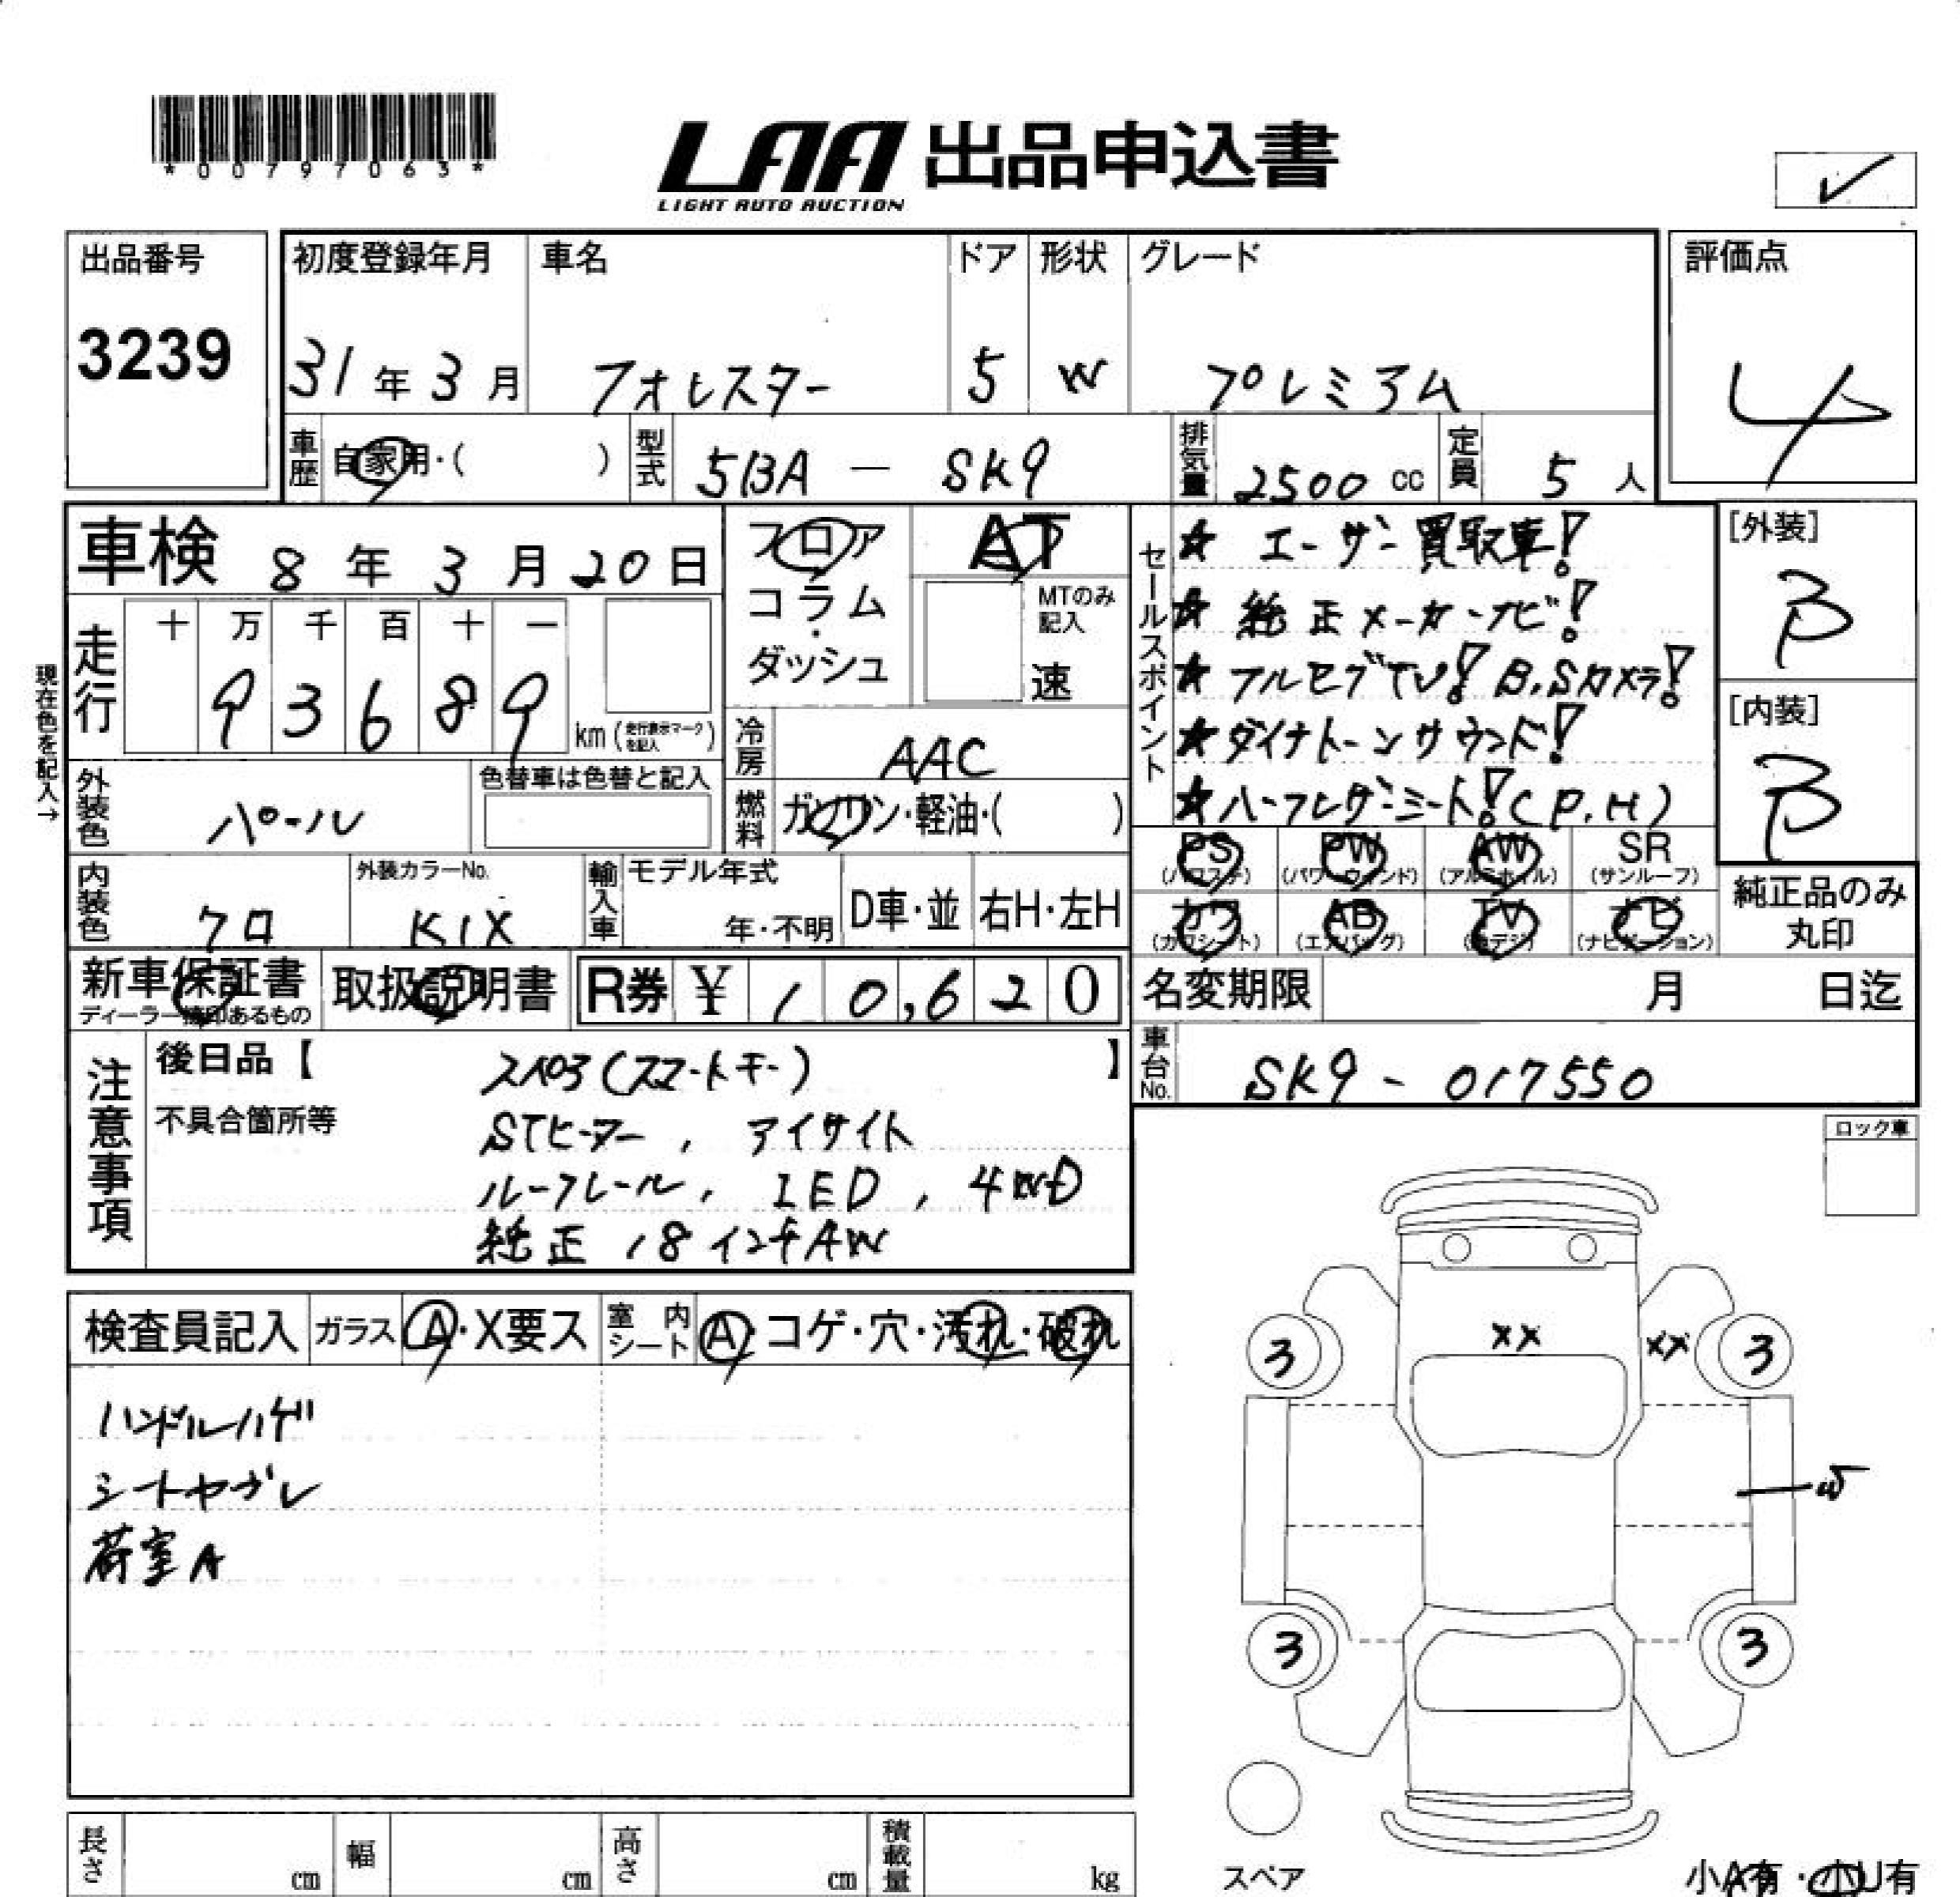 *00797063*
LAA 出品申込書
LIGHT AUTO AUCTION
✓
出品番号
3239
初度登録年月
31年3月
車名
フォレスター
ドア
5
形状
W
グレード
プレミアム
評価点
4
車歴
自家用・( )
型式
5BA - SK9
排気量
2500 cc
定員
5 人
車検 8年3月20日
フロア
コラム
・
ダッシュ
AT
MTのみ
記入
速
セールスポイント
☆ エーサン買取車!
☆ 純正メーカーナビ!
☆ フルセグTV! B.Sカメラ!
☆ ダイナトーンサウンド!
☆ ハーフレザーシート!(P.H)
[外装]
B
[内装]
B
現在色を記入→
走行
十 万 千 百 十 一
9 3 6 8 9
km (走行表示マークを記入)
冷房
AAC
外装色
パール
色替車は色替と記入
燃料
ガソリン・軽油・( )
PS
(パワステ)
PW
(パワーウィンド)
AW
(アルミホイル)
SR
(サンルーフ)
カワ
(カワシート)
AB
(エアバッグ)
TV
(地デジ)
ナビ
(ナビゲーション)
純正品のみ
丸印
内装色
クロ
外装カラーNo.
K1X
輸入車
モデル年式
年・不明
D車・並
右H・左H
新車保証書
ディーラー捺印あるもの
取扱説明書
R券 ¥ 10,620
名変期限
月 日迄
車台No.
SK9 - 017550
注意事項
後日品【 】
スペア(スマートキー)
不具合箇所等
STヒーター, アイサイト
ルーフレール, LED, 4WD
純正18インチAW
ロック車
検査員記入
ガラス
A・X要ス
室内
シート
A・コゲ・穴・汚れ・破れ
ハンドルハゲ
シートヤブレ
荷室A
XX
XX
3
3
W
3
3
スペア
小A有・小U有
長さ
cm
幅
cm
高さ
cm
積載量
kg